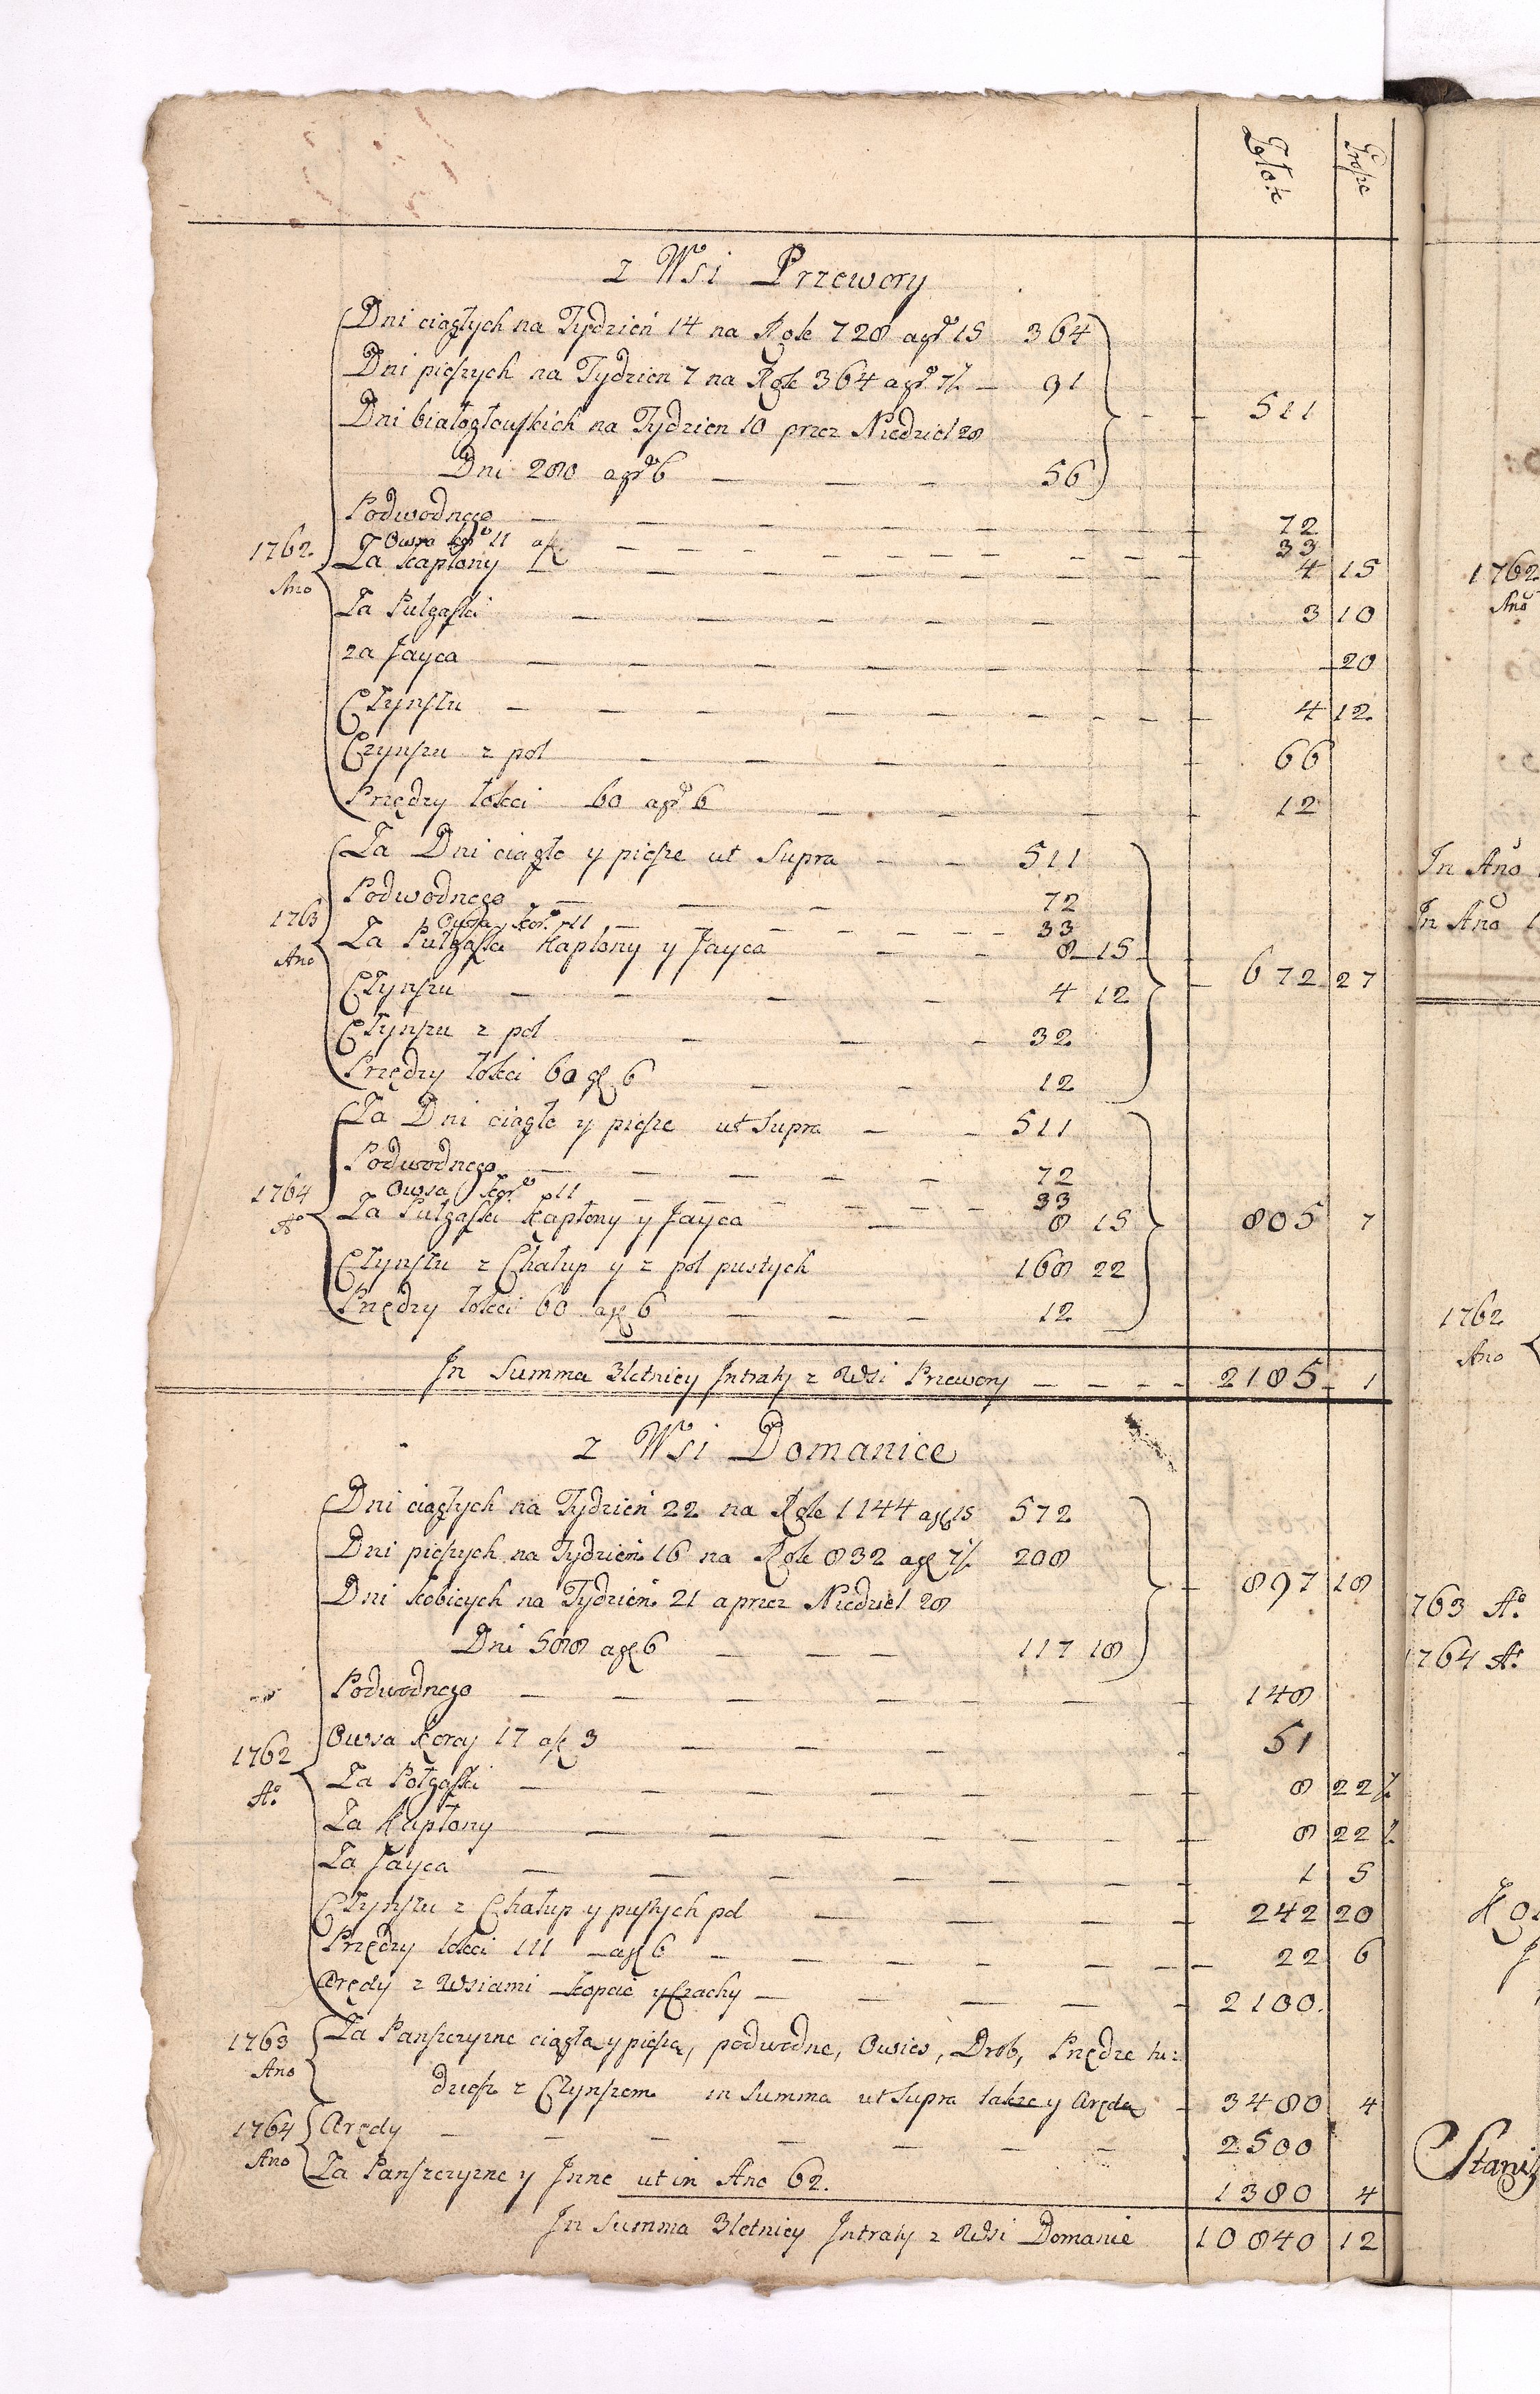 Złote Grosze
z Wsi Przewory
Dni ciągłych na Tydzień 14 na Rok 728 a gr 15 364
Dni pieszych na Tydzien 7 na Rok 364 a gr 7½ — 91
Dni białogłowskich na Tydzien 10 przez Niedziel 28
Dni 280 a gr 6 — — — 56
511
Podwodnego — — — 72
Owsa kor 11 a f 3 — — — 33
1762 Ano
Za Kapłony — — — 4 15
Za Pułgąski — — — 3 10
za Jayca — — — 20
Czynszu — — — 4 12
Czynszu z pol — — — 66
Przędzy łokci 60 a gr 6 — — — 12
Za Dni ciągłe y piesze ut Supra — — 511
Podwodnego — — — 72
Owsa kor. 11 — — — 33
1763 Ano
Za Pułgąski Kapłony y Jayca — — 8 15
672 27
Czynszu — — — 4 12
Czynszu z pol — — — 32
Przędzy łokci 60 a g 6 — — 12
Za Dni ciągłe y piesze ut Supra — — 511
Podwodnego — — — 72
Owsa kor. 11 — — — 33
1764 Aº
Za Pułgąski Kapłony y Jayca — 8 15
805 7
Czynszu z Chałup y z pol pustych 168 22
Przędzy łokci 60 a g 6 — — — 12
In Summa 3letniey Intraty z Wsi Przewory — — — — 2185 1
z Wsi Domanice
Dni ciągłych na Tydzień 22 na Rok 1144 a g 15 572
Dni pieszych na Tydzień 16 na Rok 832 a g 7½ 208
Dni kobicych na Tydzień 21 a przez Niedziel 28
Dni 588 a g 6 — — — 117 18
897 18
Podwodnego — — — 148
Owsa Koray 17 a f 3 — — — 51
1762 Aº
Za Połgąski — — — 8 22½
Za Kapłony — — — 8 22½
Za Jayca — — — 1 5
Czynszu z Chałup y pustych pol — — — 242 20
Przędzy łokci 111 — a g 6 — — — 22 6
Arędy z Wsiami Kopcie y Czachy — — — 2100
1763 Ano
Za Panszczyzne ciągłą y pieszą, podwodne, Owies, Drob, Przędze tu:
dziesz z Czynszem in Summa ut Supra takze y Arędę — 3480 4
1764 Ano
Arędy — — — 2500
Za Panszczyzne y Inne ut in Ano 62. 1380 4
In Summa 3letniey Intraty z Wsi Domanic 10840 12
1762
Ano
In Año
In Año 1
1762
Ano
763 Aº
1764 Aº